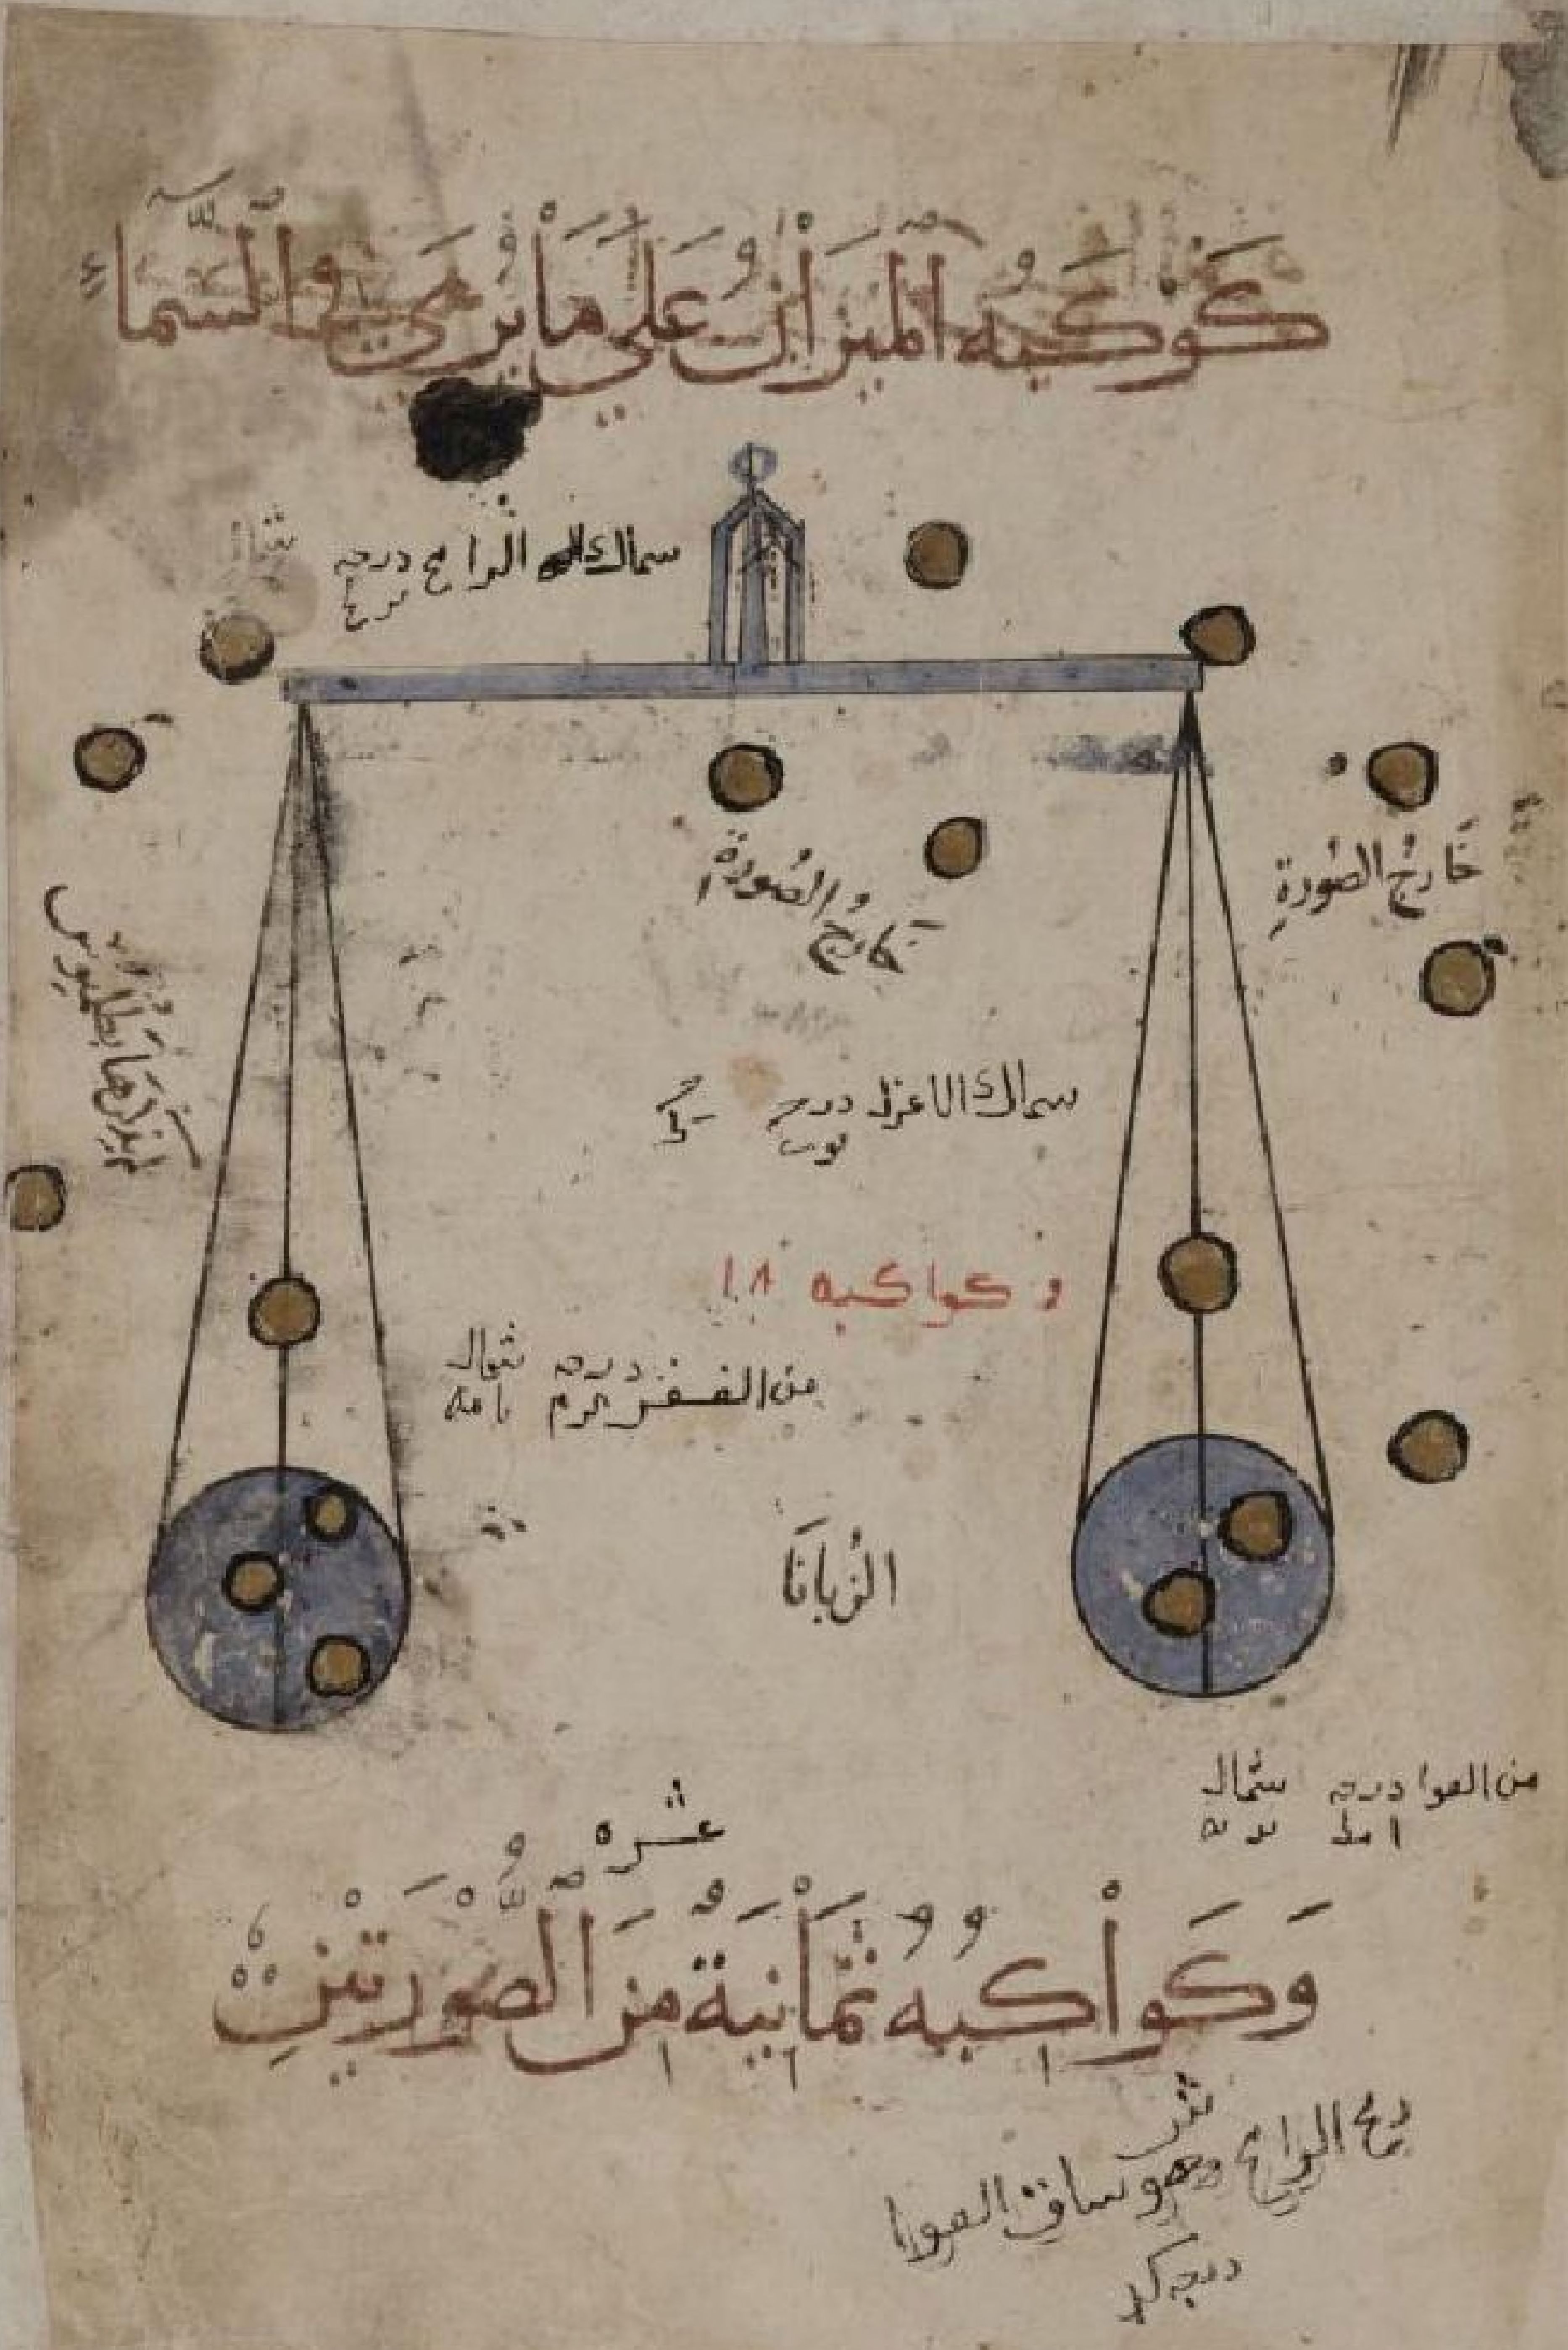 كَوْكَبُه الميزَانُ عَلَى مَا يُرَى في السَّمَاءِ
سماك الرامح درجه
شمال
خَارجُ الصُّورة
خَارجُ الصُورةِ
لم يَذكرهَا بطلميوس
سماك الاعزل درجه
و كواكبه ١٨
من الغفر درجه شمال
الزُبانَا
من العوا درجه شمال
عشره
وَكَوَاكبُه ثَمَانيَةٌ مِنَ الصُّوْرَتَيْنِ
رمح الرامح
وهو ساق العوا
درجه كد